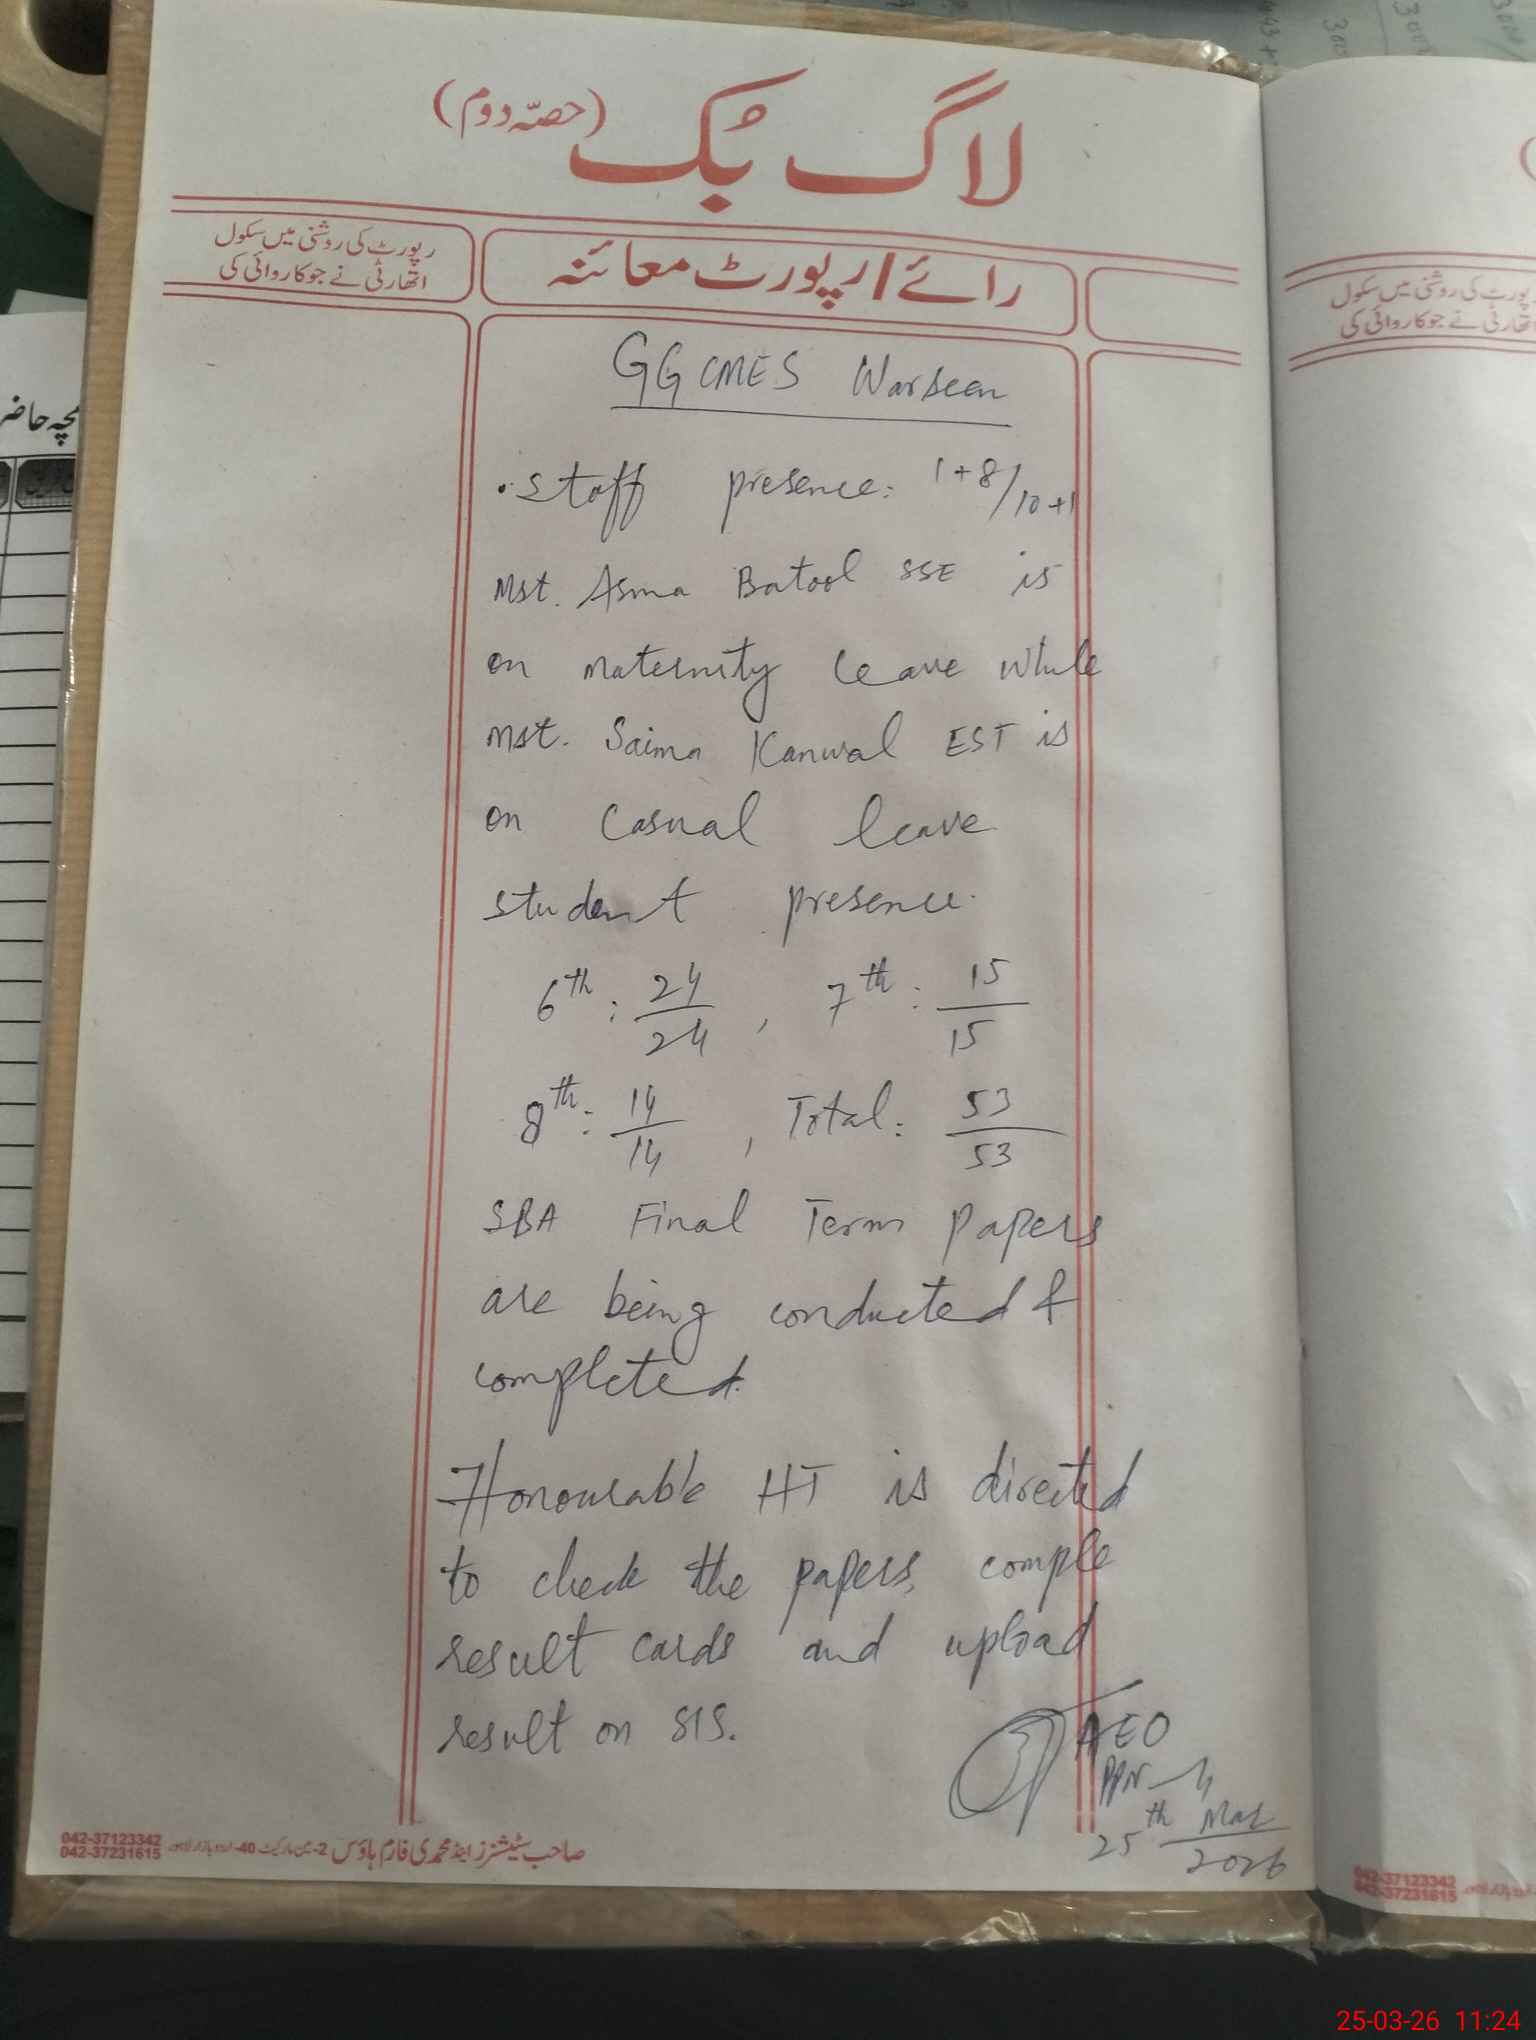 لاگ بُک (حصّہ دوم)
رپورٹ کی روشنی میں سکول
اتھارٹی نے جو کاروائی کی
رائے / رپورٹ معائنہ
GGCMES Warseen
. Staff presence: 1+8/10+1
Mst. Asma Batool SSE is
on maternity leave while
Mst. Saima Kanwal EST is
on casual leave
student presence.
6th : 24/24 , 7th : 15/15
8th : 14/14 , Total : 53/53
SBA Final Term Papers
are being conducted &
completed.
Honourable HT is directed
to check the papers, comple
result cards and upload
result on SIS.
AEO
PPN-4
25th Mar
2026
042-37123342
042-37231615
صاحب سٹیشنرز اینڈ محمدی فارم ہاؤس 2-
رپورٹ کی روشنی میں سکول
اتھارٹی نے جو کاروائی کی
042-37123342
042-37231615
25-03-26 11:24